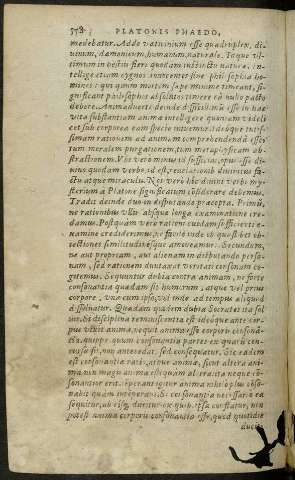 578 PLATONIS PHAEDO,
medebatur. Adde vaticinium esse quadruplex, di
uinum, dæmonicum, humanum, naturale. Itaque vl
timum in bestiis fieri quodam instinctu naturæ. in-
tellige etiam cygnos innocentes sine philosophia ho
mines: qui quum mortem sæpe minime timeant, si-
gnificant philosophos absolute timere id nullo pacto
debere. Animaduerte deinde difficilimũ esse in hac
vita substantiam animæ intelligere quoniam videli
cet sub corporea eam specie intuemur. Ideóque tutis-
simam rationem ad animam comprehendendã esse
tum moralem purgationem, tum metaphysicam ab-
stractionem. Vbi vero minus id sufficiat, opus esse di-
uino quodam verbo id est, reuelatione diuinitus fa-
cta atque miraculis. Nos vero hic diuini verbi my-
sterium a Platone significatum considerare debemus.
Tradit deinde duo in disputando præcepta. Primũ,
ne rationibus vllis absque longa examinatione cre-
damus. Postquam vero rationi cuidam sufficienti e-
xamine crediderimus, ne facile inde ob quaslibet ob-
iectiones similitudinesque amoueamur. Secundum,
ne aut propriam, aut alienam in disputando perso-
nam, sed rationem duntaxat veritati consonam co-
gitemus. Sequuntur dubia contra animam, ne forte
consonantia quædam sit humorum, atque vel prius
corpore, vna cum ipso, vel inde ad tempus aliquod
dissoluatur. Quædam quidem dubia Socrates ita sol
uit. Si disciplina reminiscentia est ideóque ante cor-
pus vixit anima, nequit anima esse corporis consonã-
tia, quippe quum consonantia partes ex quarum con-
censu fit, non antecedat, sed consequatur. Sic eadem
est consonantiæ ratio,
nobit quàm integrari. Si consonantia necessario ea
sequitur, ab eisque ducitur ex quibus ipsa constatur, non
potest anima corporis consonantia esse, quæ quotidie
ducit